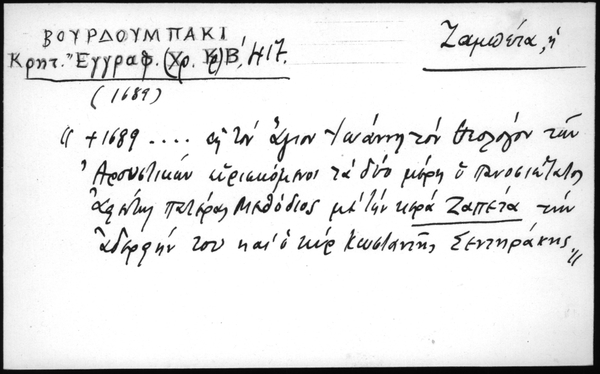 ΒΟΥΡΔΟΥΜΠΑΚΙ
Κρητ. Ἔγγραφ. (Χρ. Κρ) Β΄, 417.
Ζαμπέτα, ἡ
(1689)
« +1689 .... εἰς τὸν ἅγιον Ἰωάννη τὸν Θεολόγον τῶν
Ἀρουστικῶν εὑρισκόμενοι τὰ δύο μέρη ὁ πανοσιώτατος
ἀφέντης πατέρας Μεθόδιος μὲ τὴν κερὰ Ζαπέτα τὴν
ἀδερφήν του καὶ ὁ κὺρ Κωσταντῆς Σεντηράκης »